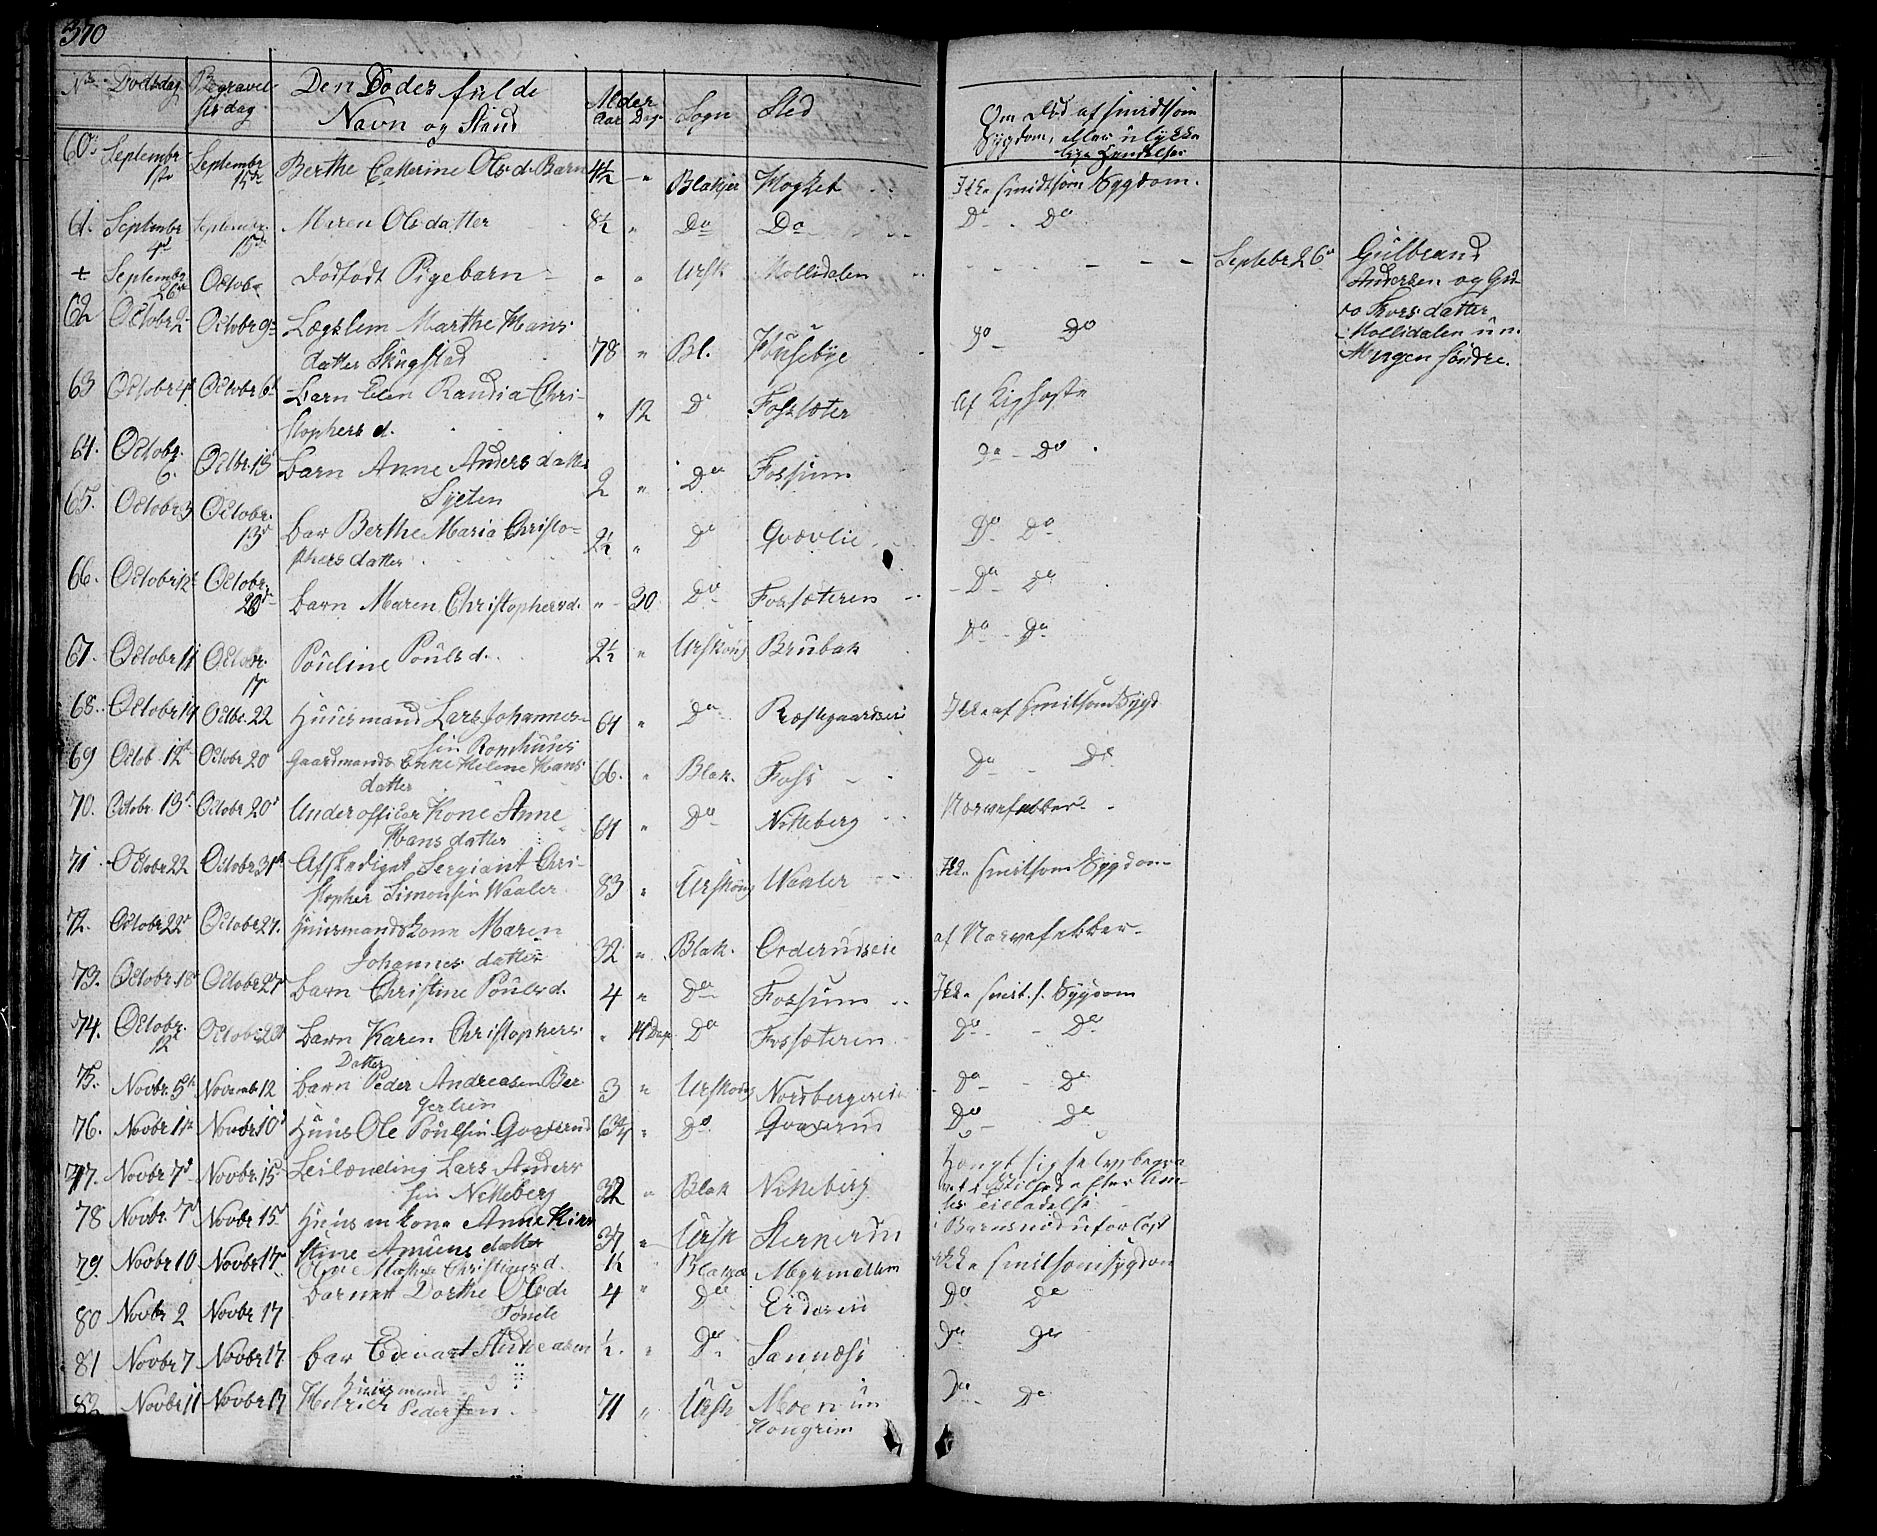 370
No Dødsdag Begravelsesdag Den Dødes fulde Navn og Stand Alder Aar Dage Sogn Sted Om Død af smidtsom Sygdom, eller ulykkelige Hendelser
60. Septembr 1ste Septembr 15de Berthe Catherine Olsd. Barn 4½ " Blakjer Hogset Ikke smidtsom Sygdom.
61. Septembr 4d Septembr 15de Maren Olsdatter 8½ " Do Do Do Do
+ Septembr 26de Octobr Dødfødt Pigebarn " " Ursk Mollidalen - - - Septebr 26d Gulbrand Andersen og Guro Thorsdatter Mollidalen un. Mogen søndre.
62 Octobr 2 Octobr 9de Lægslem Marthe Hansdatter Skugstad 78 " Bl. Husebye Do Do
63 Octobr 4d Octobr 6d Barn Elen Randia Christophersd. " 12 Do Fossæter Af Kighoste
64. Octobr. 6. Octbr. 13 Barn Anne Andersdatter 2 " Do Fossum Do Do
65. Octobr 3 Octobr. 13d Bar Berthe Maria Christophersdatter 2½ " Do Gravlie Do Do
66. Octobr 12 Octobr. 20d Barn Maren Christophersd. " 30 Do Fossæteren Do Do
67. Octobr 11 Octobr. 17 Pouline Poulsd. 2½ " Urskoug Brubak Do Do
68. Octobr 14 Octbr. 22 Huusmand Lars Johannessen 64 " Do Præstegaardseie Ikke af smitsom Sygd
69 Octob 12t Octobr 20 Gaardmands Enke Helene Hansdatter 66. " Blak. Foss Do Do
70. Octobr. 13d Octobr 20d Underofficer Kone Anne Hansdatter 64 " Do Nitteberg Nervefebber.
71 Octobr 22 Octobr 31t Afskediget Sergiant Christopher Simonsen Waaler 83 " Urskoug Waaler Ikke smitsom Sygdom
72. Octobr 22d Octobr 27. Huusmandskone Maren Johannesdatter 32 " Blak. Orderudseie af Nervefebber.
73. Octobr. 18 Octobr 27d Barn Christine Poulsd. 4 " Do Fossum Ikke smit.s. Sygdom
74. Octobr. 12 Octobr 20 Barn Karen Christophersdatter " 14 Dage Do Fossæteren Do Do
75. Novbr. 5t Novembr 12 Barn Peder Andreasen 3 " Urskoug Norsbergereie Do Do
76. Novbr 11 Novbr 10d Huus Ole Poulsen Goxerud 63¾ " Do Goxerud Do Do
77. Novbr 7d Novbr. 15 Leilænding Lars Andersen Nitteberg 32 " Blak Nitteberg Hængt sig selv
78 Novbr. 7d Novbr 15d Huusm kone Anne Kirstine Amundsdatter 37 " Ursk Sternerud i Barnsnød uforløst
79. Novbr 10 Novbr 17d Christiansd. ½ " Blakjer Ikke smitsom Sygdom
80 Novbr 2 Novbr 17 Barnet Dorthe Olsd. 4 " Do Do Do
81 Novbr 7 Novbr 17 Bar Edevart Andreasen ½. " Do Sannæs Do Do
82 Novbr 11 Novbr 17 Huusmand Helrich Pedersen 71 " Ursk Moen un Hongrim Do Do